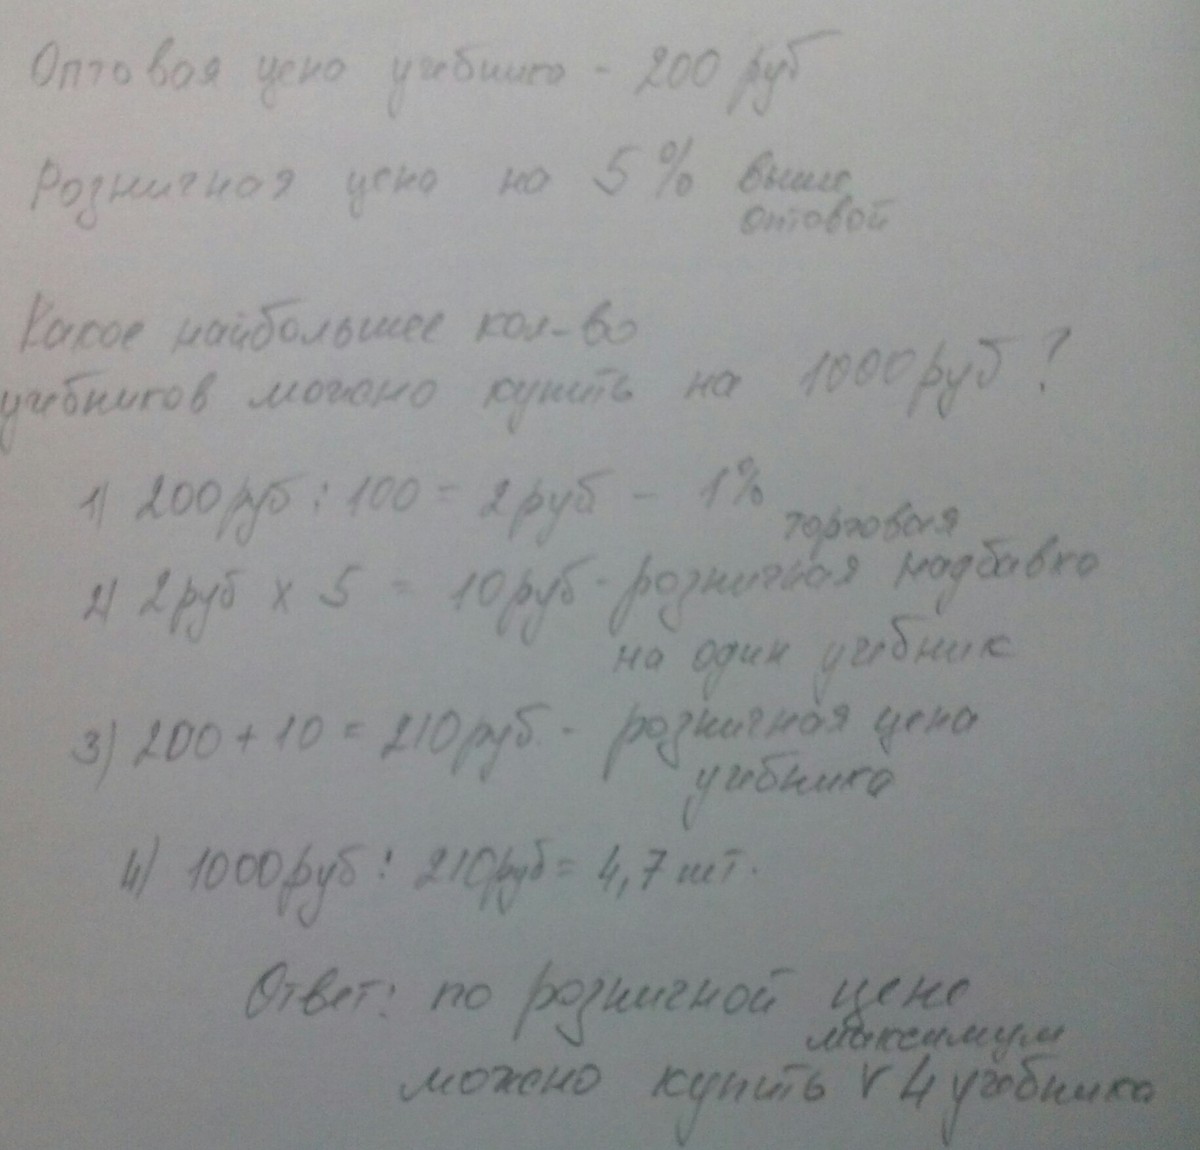 Оптовая цена учебника - 200 руб
Розничная цена на 5% выше
оптовой
Какое наибольшее кол-во
учебников можно купить на 1000 руб?
1) 200 руб : 100 = 2 руб - 1%
2) 2 руб х 5 = 10 руб - розничная торговая надбавка
на один учебник
3) 200 + 10 = 210 руб. - розничная цена
учебника
4) 1000 руб : 210 руб = 4,7 шт.
Ответ: по розничной цене
максимум
можно купить V 4 учебника